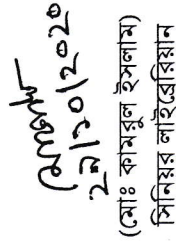 ২৯/১০/২০২০
(মোঃ কামরুল ইসলাম)
সিনিয়র লাইব্রেরিয়ান